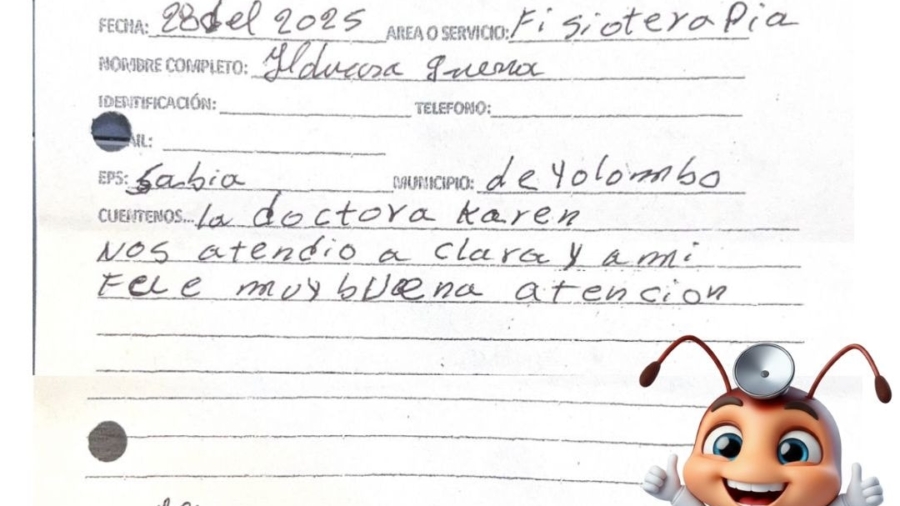 FECHA: 28 del 2025 AREA O SERVICIO: Fisioterapia
NOMBRE COMPLETO:
IDENTIFICACIÓN: TELEFONO:
EPS: Sabia MUNICIPIO: de Yolombo
CUENTENOS... la doctora Karen
Nos atendio a Clara y a mi
Fue muy buena atencion